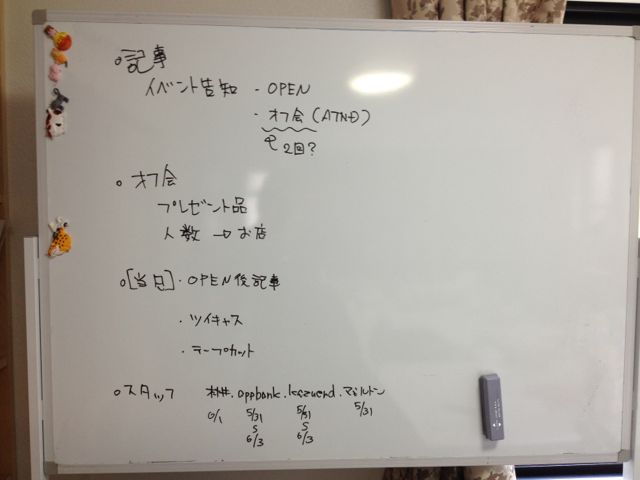 ○記事
イベント告知 ・OPEN
・オフ会(ATND)
2回?
○オフ会
プレゼント品
人数 → お店
○[当日]・OPEN後記事
・ツイキャス
・テープカット
○スタッフ 村井.appbank.kazuend.マミルトン
6/1 5/31 5/31 5/31
S S
6/3 6/3